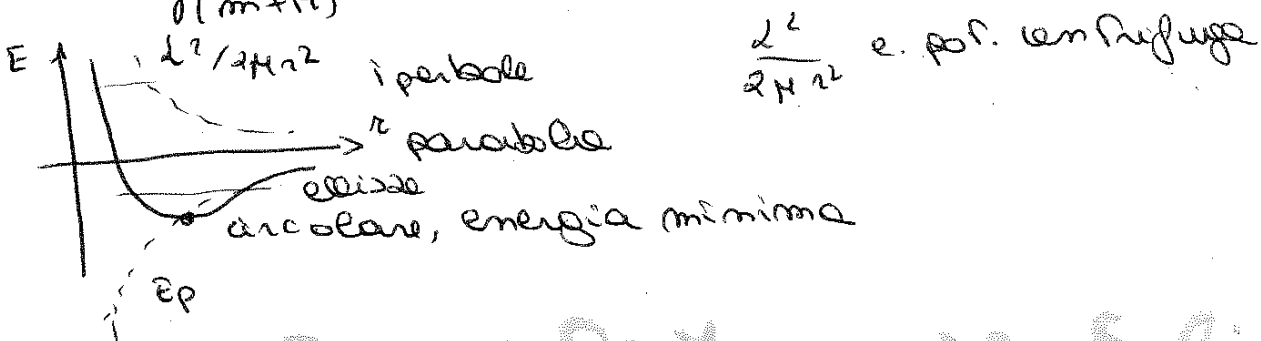 γ(m+M)
E
L²/2μr² iperbole
L²/2μr² e. pot. centrifuga
r parabola
ellisse
circolare, energia minima
Ep